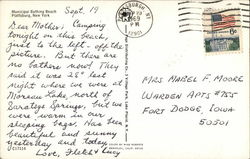 Municipal Bathing Beach
Plattsburg, New York
Sept. 19
Dear Mother: Camping
tonight on this beach,
just to the left - off the
picture. But there are
no bathers now! They
said it was 28° last
night where we were at
Moreau Lake, north of
Saratoga Springs, but we
were warm in our
sleeping bags. Has been
beautiful and sunny
yesterday and today.
Love, Fletch & Lucy
PM
1969
12901
6¢
MRS MABEL F. MOORE
WARDEN APTS #755
FORT DODGE, IOWA
50501